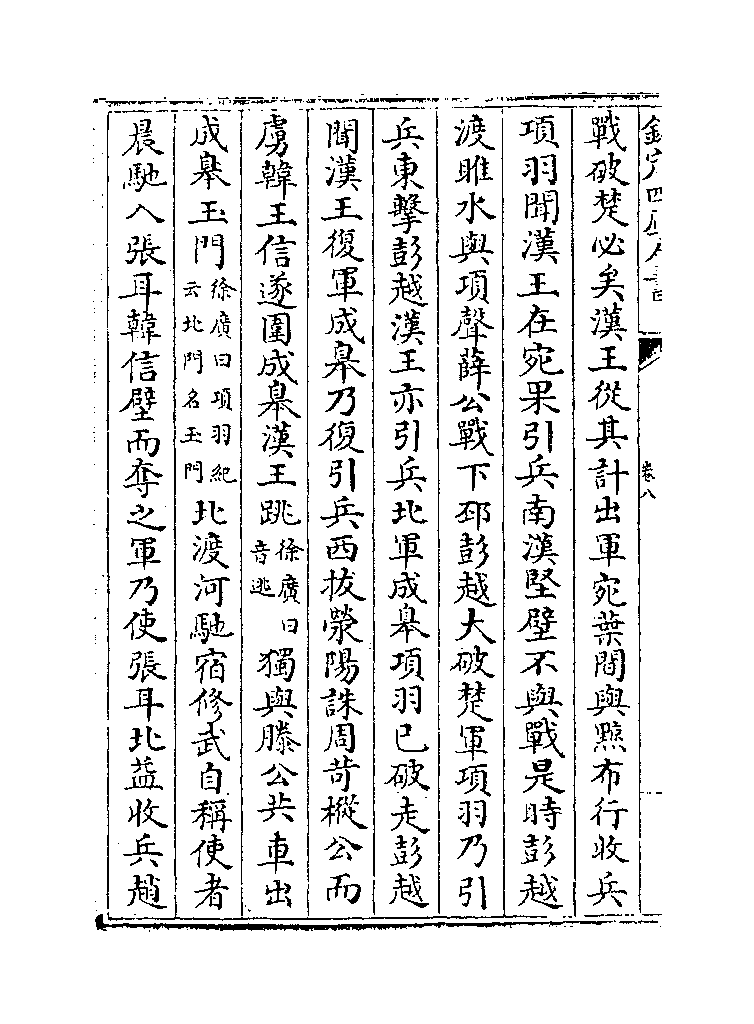 欽定四庫全書
卷八
戰破楚必矣漢王從其計出軍宛葉間與黥布行收兵
項羽聞漢王在宛果引兵南漢堅壁不與戰是時彭越
渡睢水與項聲薛公戰下邳彭越大破楚軍項羽乃引
兵東擊彭越漢王亦引兵北軍成皋項羽已破走彭越
聞漢王復軍成皋乃復引兵西拔滎陽誅周苛樅公而
虜韓王信遂圍成皋漢王跳徐廣曰音逃獨與滕公共車出
成皋玉門徐廣曰項羽紀云北門名玉門北渡河馳宿修武自稱使者
晨馳入張耳韓信壁而奪之軍乃使張耳北益收兵趙